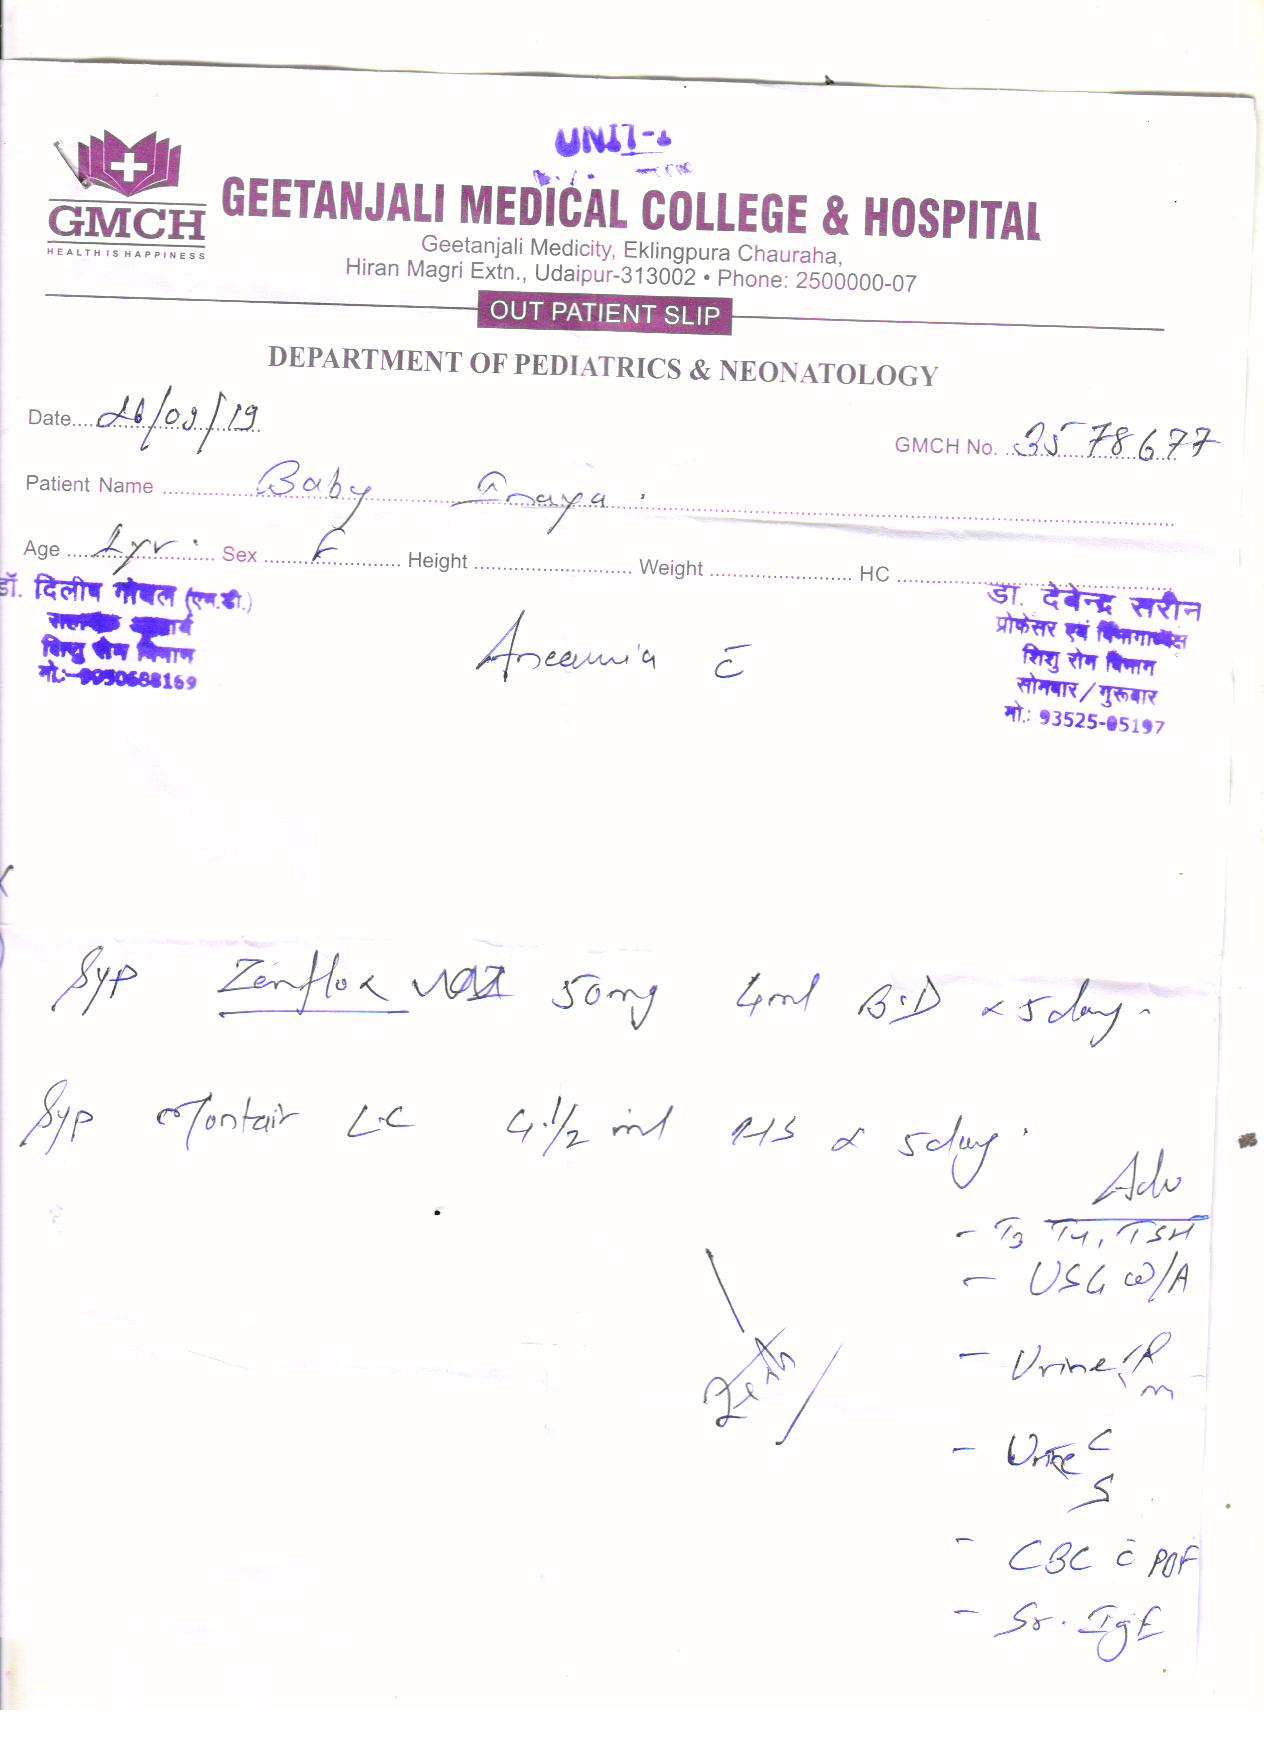 UNIT-1
GMCH
HEALTH IS HAPPINESS
GEETANJALI MEDICAL COLLEGE & HOSPITAL
Geetanjali Medicity, Eklingpura Chauraha,
Hiran Magri Extn., Udaipur-313002 • Phone: 2500000-07
OUT PATIENT SLIP
DEPARTMENT OF PEDIATRICS & NEONATOLOGY
Date.... 26/09/19
GMCH No. 3578677
Patient Name Baby Inaya
Age 1yr. Sex F Height Weight HC
डॉ. दिलीप गोयल (एम.डी.)
शिशु रोग विभाग
डा. देवेन्द्र सरीन
प्रोफेसर एवं विभागाध्यक्ष
शिशु रोग विभाग
सोमवार / गुरूवार
मो.: 93525-05197
Anaemia c̄
Syp Zenflox 50mg 4ml B.D x 5day.
Syp Montair LC 4.1/2 ml HS x 5day.
Adv
- T3 T4, TSH
- USG W/A
- Urine R/M
- Urine C/S
- CBC c̄ PBF
- Sr. IgE